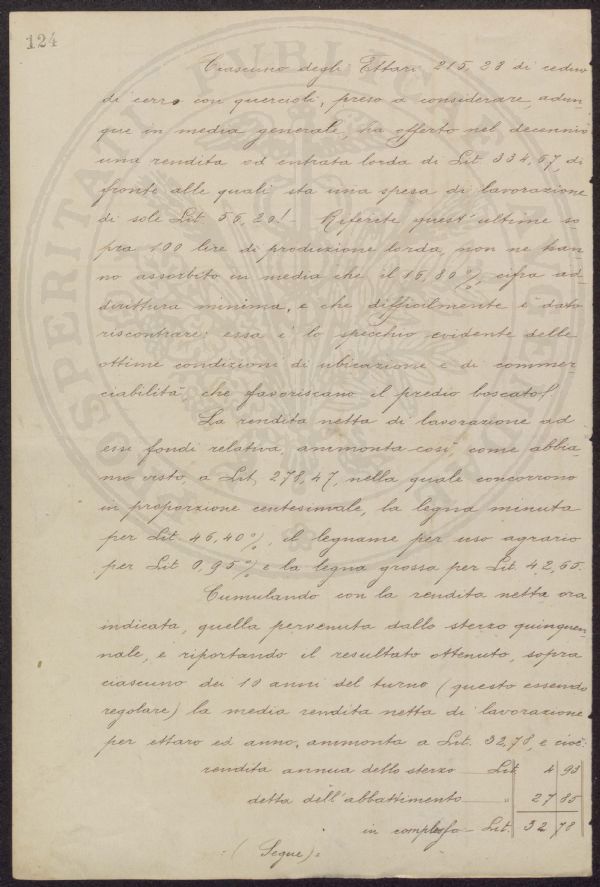 124
Ciascuno degli Ettari 215,28 di ceduo
di cerro con quercioli, preso a considerare, adun-
que in media generale, ha offerto nel decennio
una rendita od entrata lorda di Lit. 334,67, di
fronte alle quali sta una spesa di lavorazione
di sole Lit 56,20! - Riferite quest'ultime so
pra 100 lire di produzione lorda, non ne han-
no assorbito in media che il 16,80%, cifra ad-
dirittura minima, e che difficilmente è dato
riscontrare: essa è lo specchio evidente delle
ottime condizioni di ubicazione e di commer-
ciabilità che favoriscano il predio boscato!
La rendita netta di lavorazione ad
essi fondi relativa, ammonta così, come abbia-
mo visto, a Lit. 278,47, nella quale concorrono
in proporzione centesimale, la legna minuta
per Lit 46,40%, il legname per uso agrario
per Lit 0,95% e la legna grossa per Lit. 42,65.
Cumulando con la rendita netta ora
indicata, quella pervenuta dallo sterzo quinquen-
nale, e riportando il resultato ottenuto, sopra
ciascuno dei 10 anni del turno (questo essendo
regolare) la media rendita netta di lavorazione
per ettaro ed anno, ammonta a Lit. 32,78, e cioè:
rendita annua dello sterzo Lit. 4 93
detta dell'abbattimento " 27 85
in complesso Lit. 32 78
:(Segue):
PROSPERITATI PVBLICAE AVGENDAE